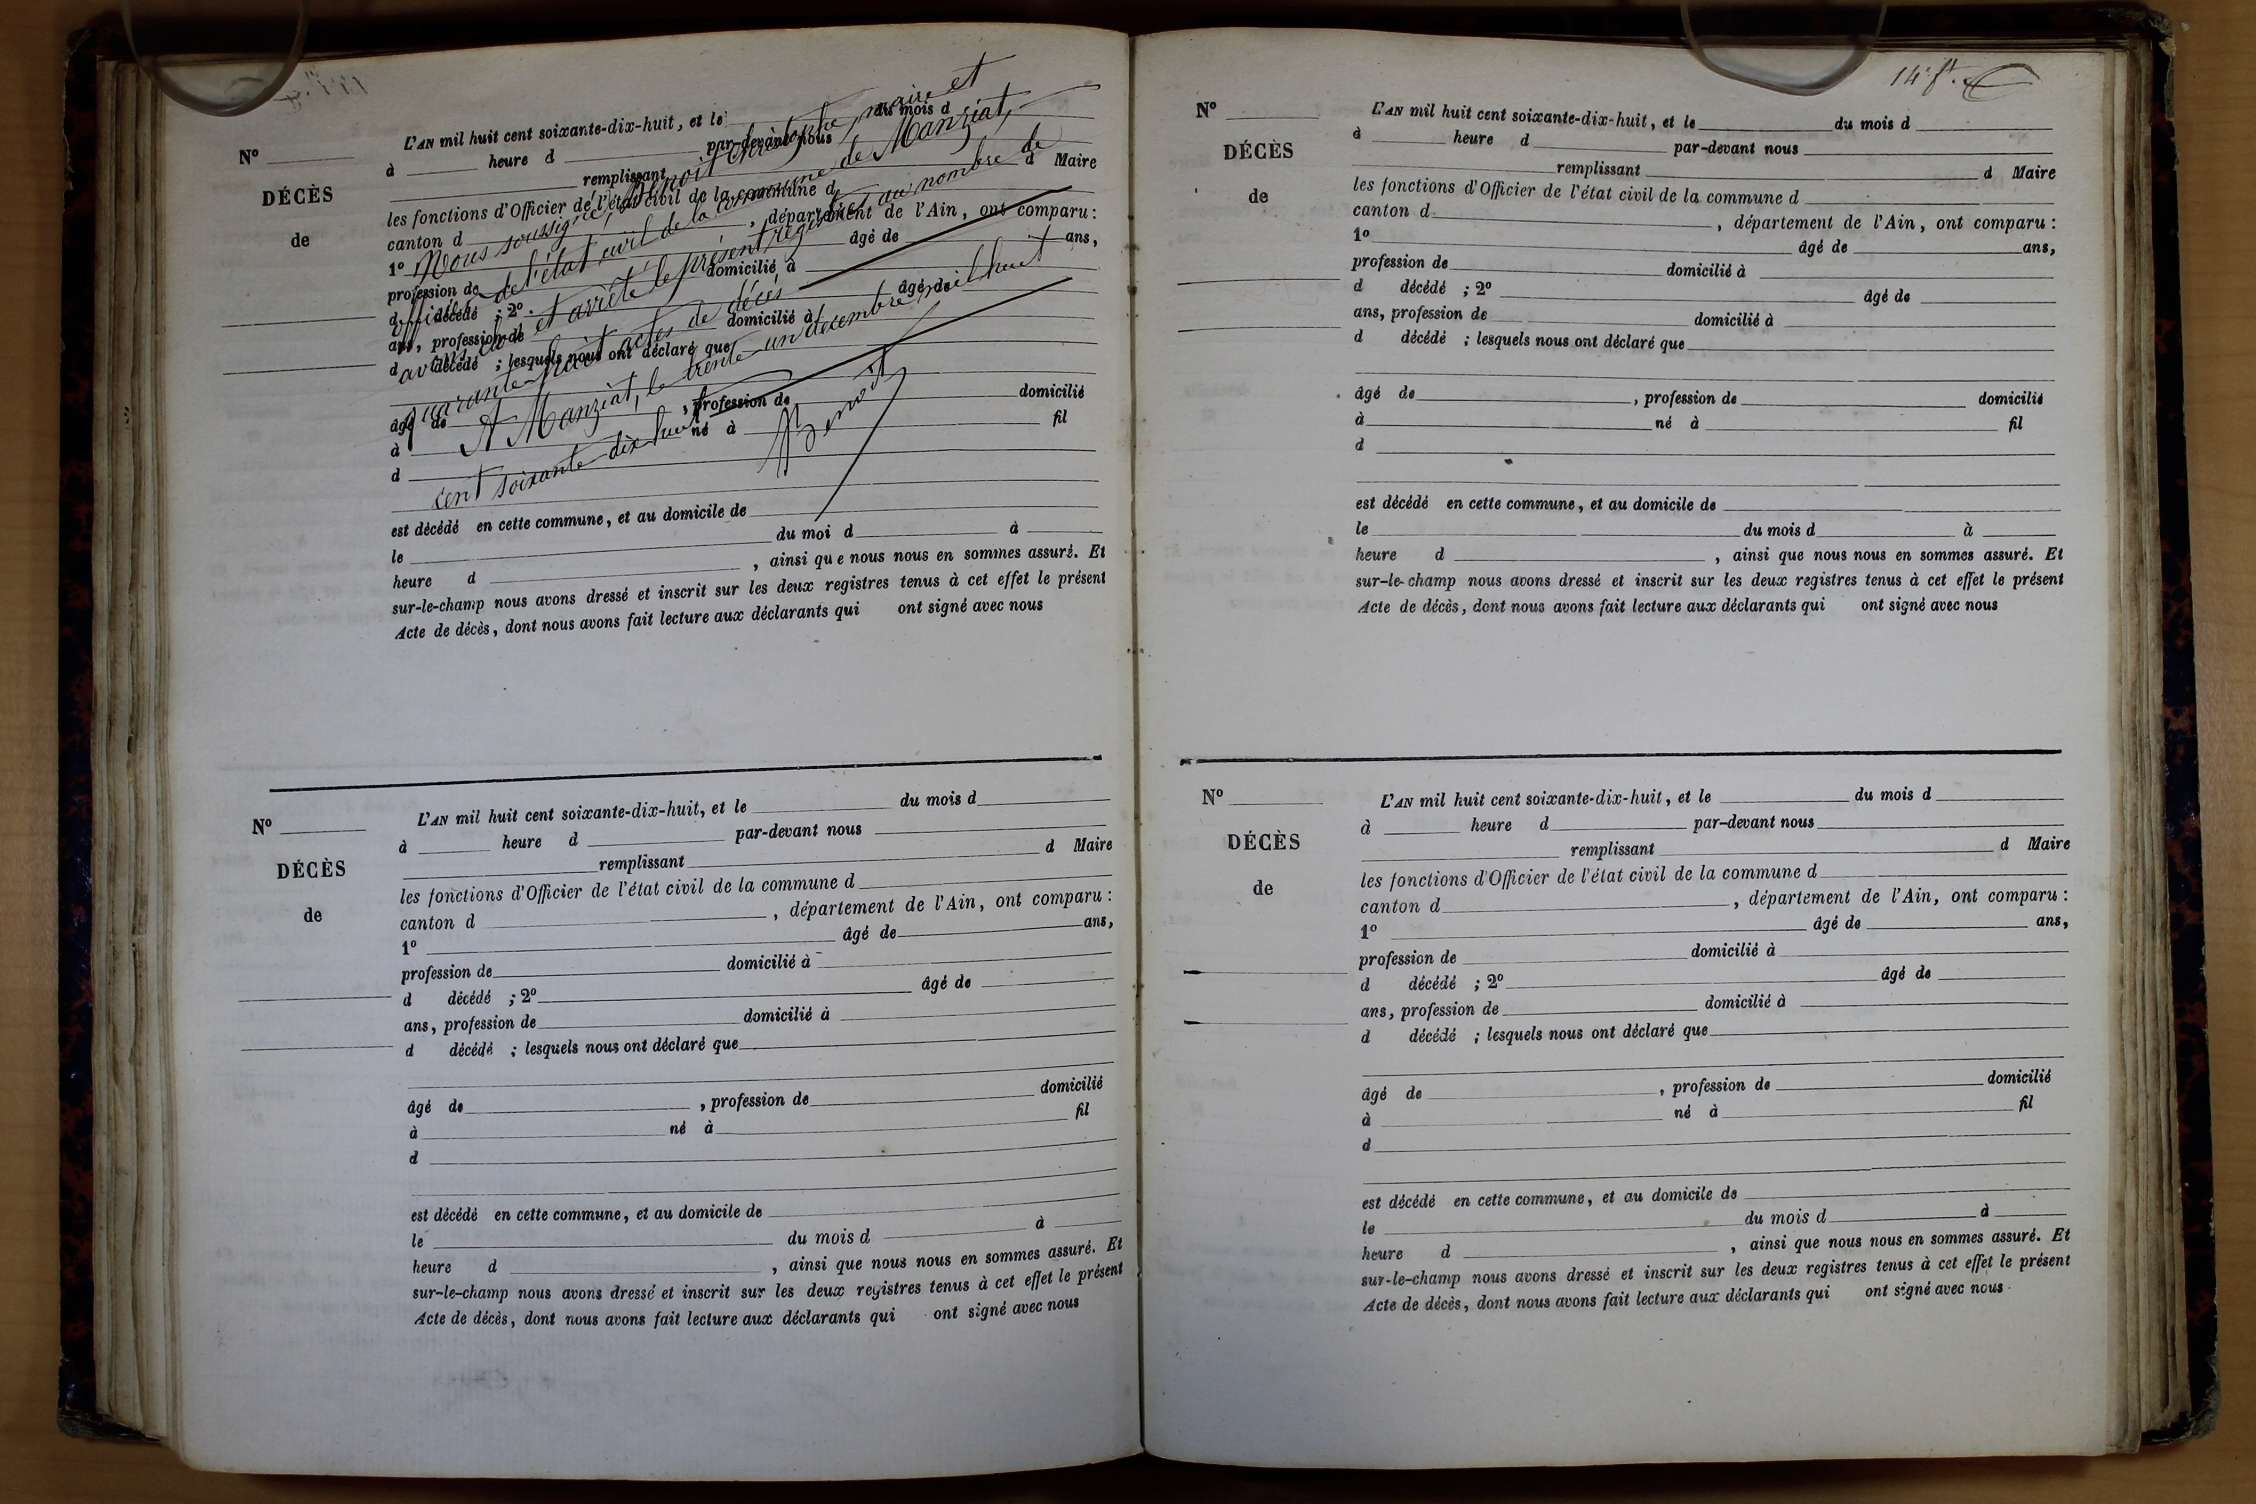 L'AN mil huit cent soixante-dix-huit, et le du mois d
à heure d par-devant nous
remplissant d Maire
les fonctions d'Officier de l'état civil de la commune d
canton d , département de l'Ain, ont comparu :
1º âgé de ans,
profession de domicilié à
d décédé ; 2º âgé de
ans, profession de domicilié à
d décédé ; lesquels nous ont déclaré que
âgé de , profession de domicilié
à né à fil
d
est décédé en cette commune, et au domicile de
le du moi d à
heure d , ainsi que nous nous en sommes assuré. Et
sur-le-champ nous avons dressé et inscrit sur les deux registres tenus à cet effet le présent
Acte de décès, dont nous avons fait lecture aux déclarants qui ont signé avec nous
Nº
DÉCÈS
de
Nous soussigné, Benoit Christophe, maire et
officier de l'état civil de la commune de Manziat,
avons clos et arrêté le présent registre au nombre de
quarante-huit actes de décès
A Manziat, le trente-un décembre mil huit
cent soixante dix huit
Benoit
Nº
DÉCÈS
de
L'AN mil huit cent soixante-dix-huit, et le du mois d
à heure d par-devant nous
remplissant d Maire
les fonctions d'Officier de l'état civil de la commune d
canton d , département de l'Ain, ont comparu :
1º âgé de ans,
profession de domicilié à
d décédé ; 2º âgé de
ans, profession de domicilié à
d décédé ; lesquels nous ont déclaré que
âgé de , profession de domicilié
à né à fil
d
est décédé en cette commune, et au domicile de
le du mois d à
heure d , ainsi que nous nous en sommes assuré. Et
sur-le-champ nous avons dressé et inscrit sur les deux registres tenus à cet effet le présent
Acte de décès, dont nous avons fait lecture aux déclarants qui ont signé avec nous
14e ft.
Nº
DÉCÈS
de
L'AN mil huit cent soixante-dix-huit, et le du mois d
à heure d par-devant nous
remplissant d Maire
les fonctions d'Officier de l'état civil de la commune d
canton d , département de l'Ain, ont comparu :
1º âgé de ans,
profession de domicilié à
d décédé ; 2º âgé de
ans, profession de domicilié à
d décédé ; lesquels nous ont déclaré que
âgé de , profession de domicilié
à né à fil
d
est décédé en cette commune, et au domicile de
le du mois d à
heure d , ainsi que nous nous en sommes assuré. Et
sur-le-champ nous avons dressé et inscrit sur les deux registres tenus à cet effet le présent
Acte de décès, dont nous avons fait lecture aux déclarants qui ont signé avec nous
Nº
DÉCÈS
de
L'AN mil huit cent soixante-dix-huit, et le du mois d
à heure d par-devant nous
remplissant d Maire
les fonctions d'Officier de l'état civil de la commune d
canton d , département de l'Ain, ont comparu :
1º âgé de ans,
profession de domicilié à
d décédé ; 2º âgé de
ans, profession de domicilié à
d décédé ; lesquels nous ont déclaré que
âgé de , profession de domicilié
à né à fil
d
est décédé en cette commune, et au domicile de
le du mois d à
heure d , ainsi que nous nous en sommes assuré. Et
sur-le-champ nous avons dressé et inscrit sur les deux registres tenus à cet effet le présent
Acte de décès, dont nous avons fait lecture aux déclarants qui ont signé avec nous